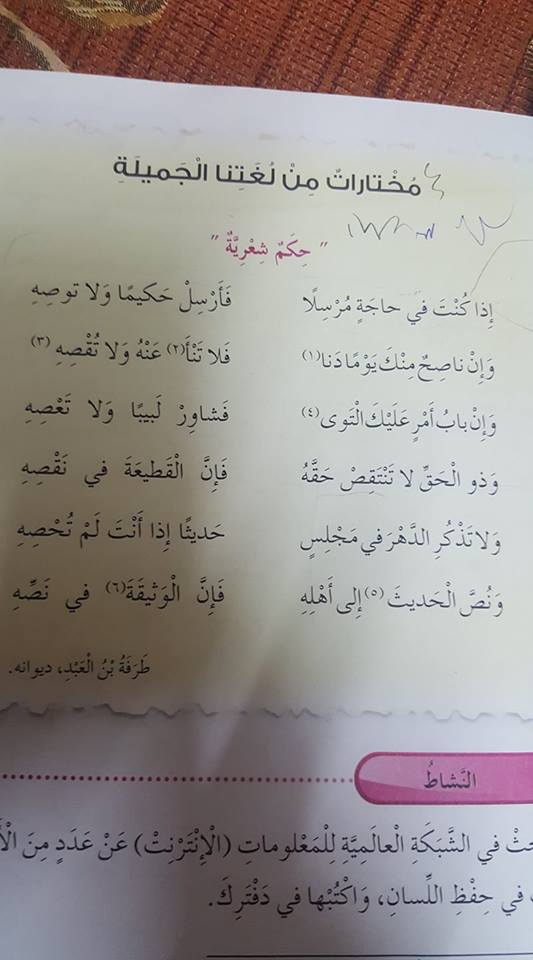 مُخْتاراتٌ مِنْ لُغَتِنا الْجَميلَةِ
" حِكَمٌ شِعْرِيَّةٌ "
إِذا كُنْتَ في حاجَةٍ مُرْسِلًا فَأَرْسِلْ حَكيمًا وَلا توصِهِ
وَإِنْ ناصِحٌ مِنْكَ يَوْمًا دَنا (١) فَلا تَنْأَ (٢) عَنْهُ وَلا تُقْصِهِ (٣)
وَإِنْ بابُ أَمْرٍ عَلَيْكَ الْتَوى (٤) فَشاوِرْ لَبيبًا وَلا تَعْصِهِ
وَذو الْحَقِّ لا تَنْتَقِصْ حَقَّهُ فَإِنَّ الْقَطيعَةَ في نَقْصِهِ
وَلا تَذْكُرِ الدَّهْرَ في مَجْلِسٍ حَديثًا إِذا أَنْتَ لَمْ تُحْصِهِ
وَنُصَّ الْحَديثَ (٥) إِلى أَهْلِهِ فَإِنَّ الْوَثيقَةَ (٦) في نَصِّهِ
طَرَفَةُ بْنُ الْعَبْدِ، ديوانه.
النَّشاطُ
في الشَّبَكَةِ الْعالَمِيَّةِ لِلْمَعْلوماتِ (الْإِنْتَرْنِتْ) عَنْ عَدَدٍ مِنَ
في حِفْظِ اللِّسانِ، وَاكْتُبْها في دَفْتَرِكَ.